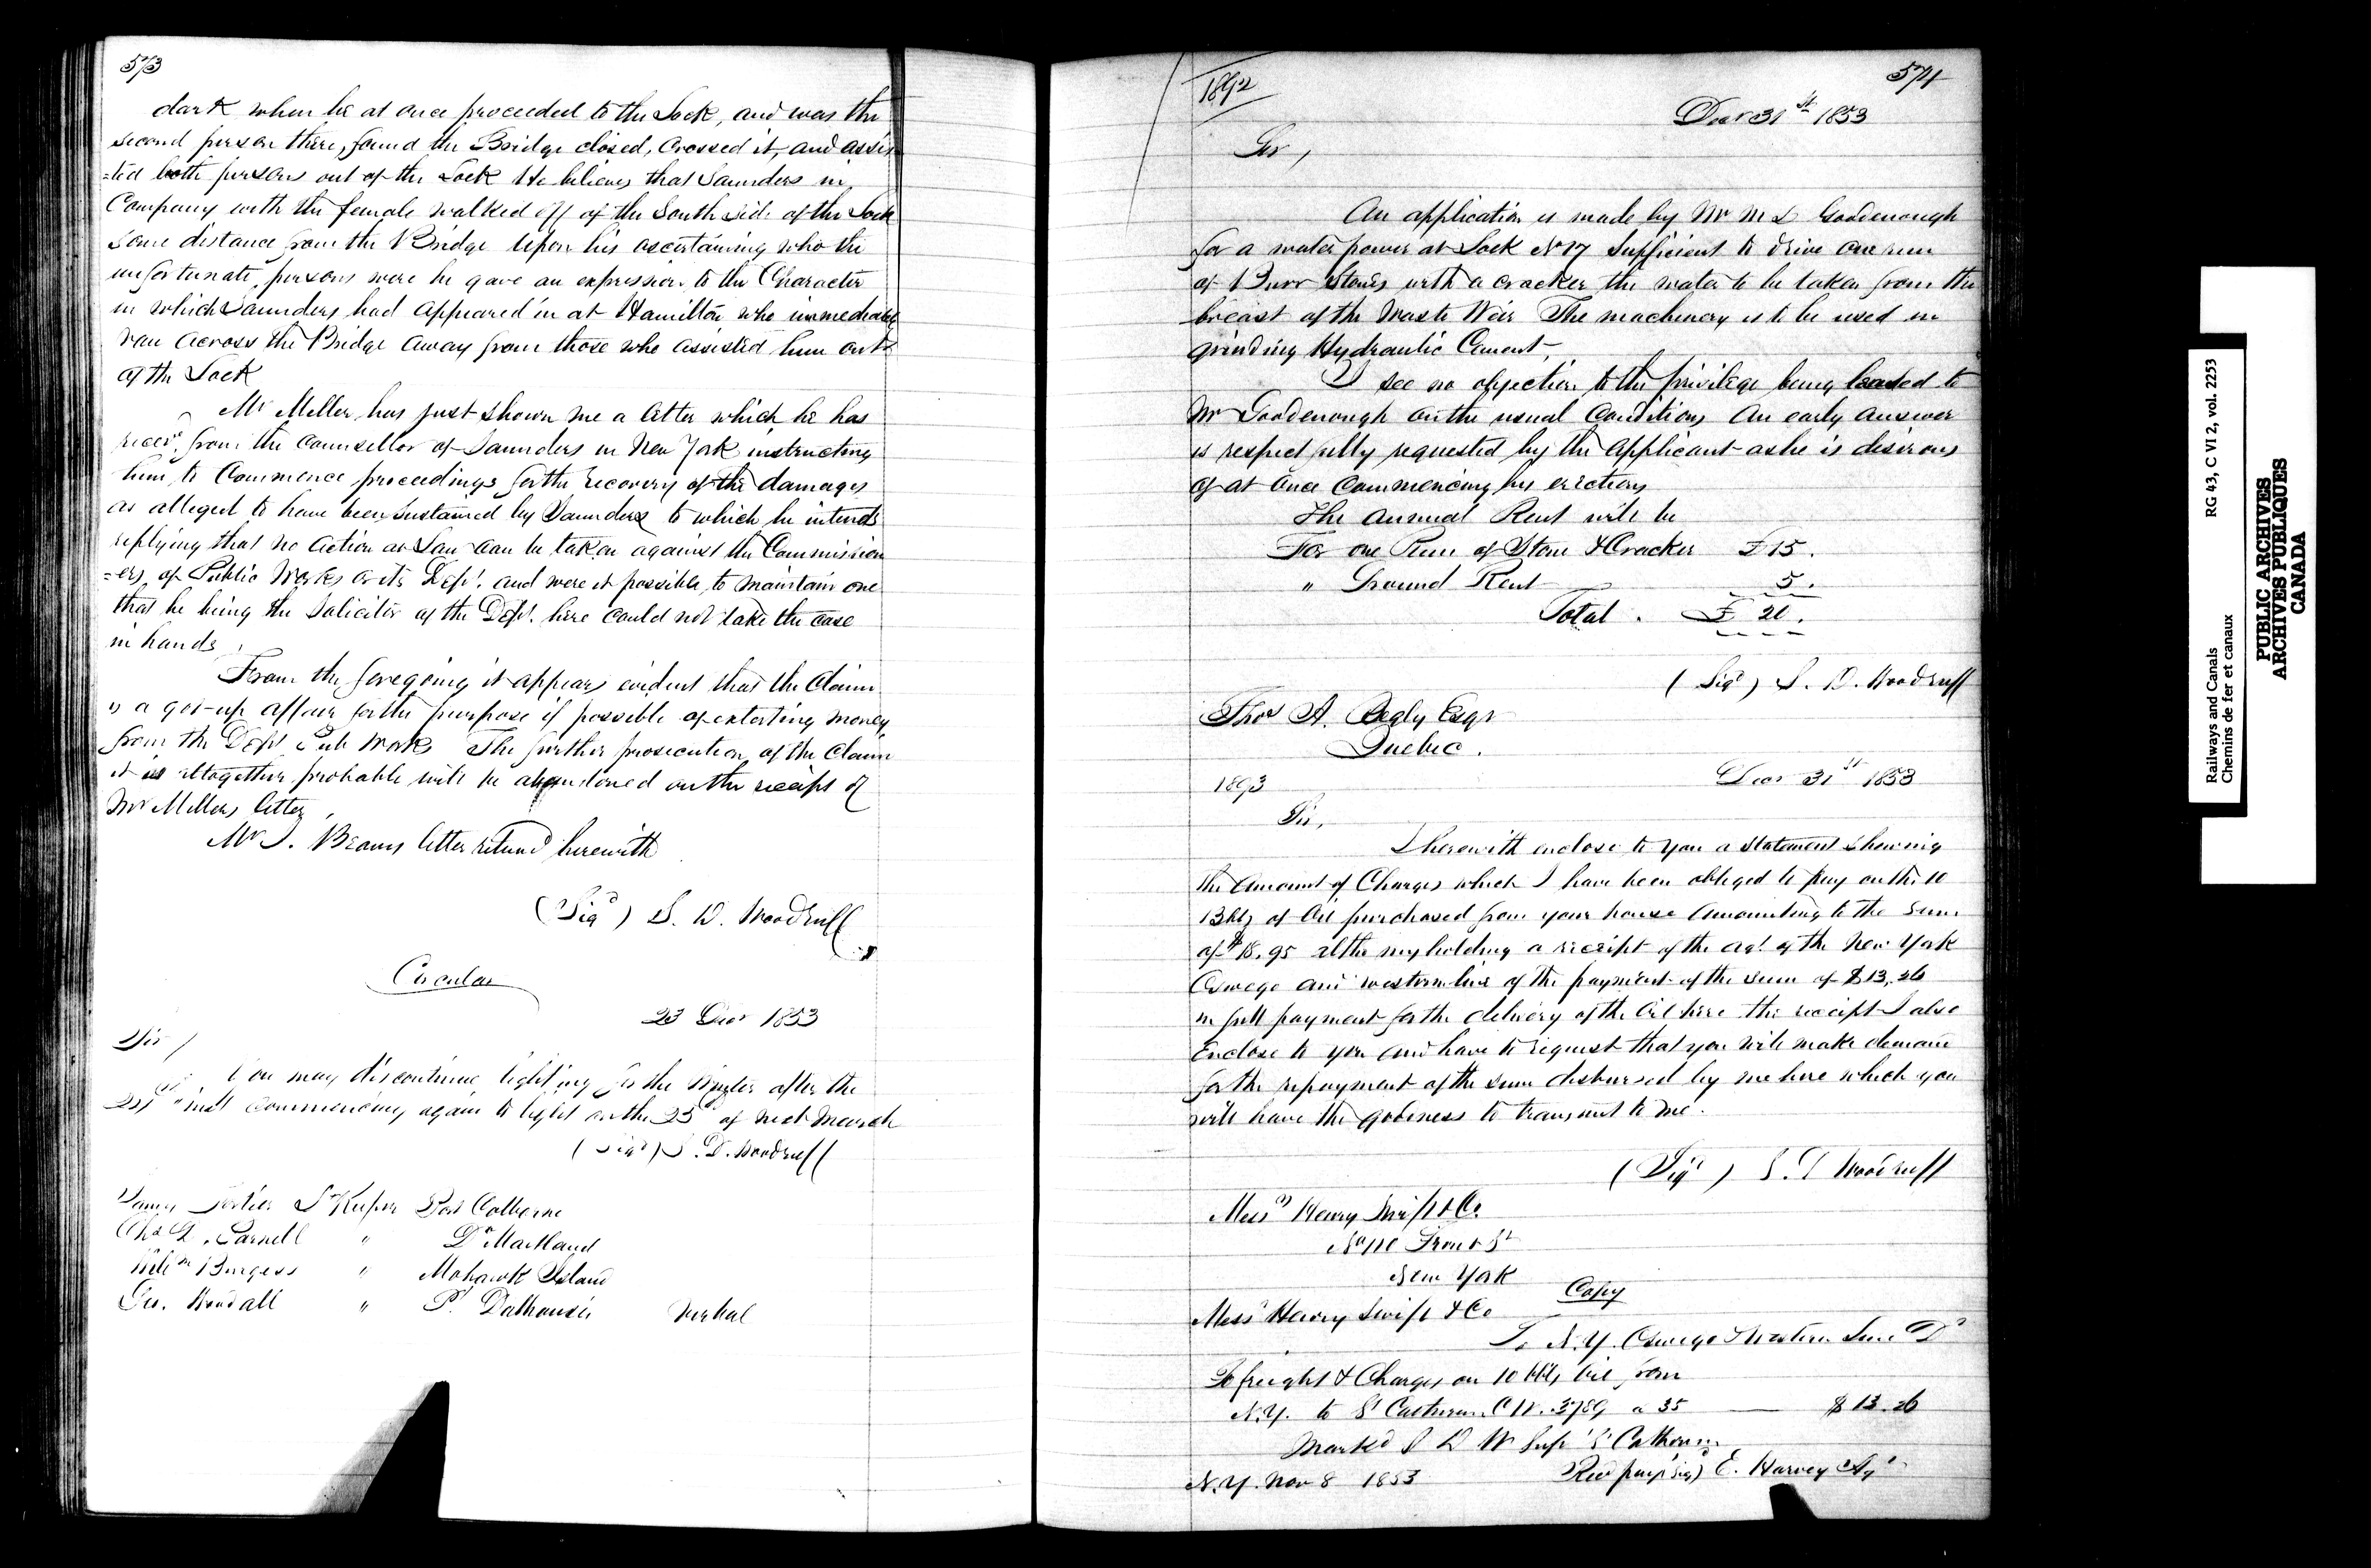 573
dark when he at once proceeded to the Lock, and was the
second person there, found the Bridge closed, crossed it, and assis
=ted both persons out of the Lock He believes that Saunders in
Company with the female walked off of the South side of the Lock
some distance from the Bridge Upon his ascertaining who the
unfortunate persons were he gave an expression to the Character
in which Saunders had appeared in at Hamilton who immediately
ran across the Bridge away from those who assisted him out
of the Lock
Mr Miller has just shown me a letter which he has
recevd from the Counsellor of Saunders in New York instructing
him to Commence proceedings for the recovery of the damages
as alleged to have been sustained by Saunders to which he intends
replying that no action at Law can be taken against the Commission
=ers of Public Works or its Dept. and were it possible to maintain one
that he being the Solicitor of the Dept. here could not take the case
in hands
From the foregoing it appears evident that the Claim
is a got-up affair for the purpose if possible of extorting money
from the Dept Pub Works The further prosecution of the Claim
it is altogether probable will be abandoned on the receipt of
Mr Millers letter
Mr J. Beams letter returnd herewith
(Sigd) S. D. Woodruff
Circular
23 Decr 1853
Sir /
You may discontinue lighting for the Winter after the
inst commencing again to light on the 25 of next March
(Sigd) S. D. Woodruff
James Fortier L Keeper Port Colborne
Chs L. Parnell " Do Maitland
Willm Burgess " Mohawk Island
Geo. Woodall " Pt Dalhousie Verbal
574
1892
Decr 31st 1853
Sir,
An application is made by Mr M S Goodenough
for a water power at Lock No 17 sufficient to drive one run
of Burr Stones with a cracker the water to be taken from the
breast of the Waste Weir The machinery is to be used in
grinding Hydraulic Cement,
I see no objection to the privilege being leased to
Mr Goodenough on the usual Conditions An early answer
is respectfully requested by the applicant as he is desirous
of at once Commencing his erections
The annual Rent will be
For one Run of Stone & Cracker £ 15.
" Ground Rent 5.
Total . £ 20.
(Sigd) S. D. Woodruff
Thos A. Begly Esqr
Quebec.
1893
Decr 31st 1853
Sir,
I herewith enclose to you a statement shewing
the amount of Charges which I have been obliged to pay on the 10
Bbls of Oil purchased from your house amounting to the sum
of $18.95 altho my holding a receipt of the agt of the New York
Oswego and western line of the payment of the sum of $13.26
in full payment for the delivery of the Oil here the receipt I also
Enclose to you and have to request that you will make demand
for the repayment of the sum disbursed by me here which you
will have the goodness to transmit to me.
(Sigd) S. D Woodruff
Messrs Henry Swift & Co.
No 110 Front St
New York
Copy
Messrs Henry Swift & Co
To N.Y. Oswego & Western Line Dr
To freight & Charges on 10 bbls Oil from
N.Y. to St Catherines C W. 3789 a 35 $ 13.26
Markd S D W Supt St Catherines
N.Y. Nov 8 1853 Recd payt (Sigd) E. Harvey Agt
Railways and Canals RG 43, C VI 2, vol. 2253
Chemins de fer et canaux
PUBLIC ARCHIVES
ARCHIVES PUBLIQUES
CANADA